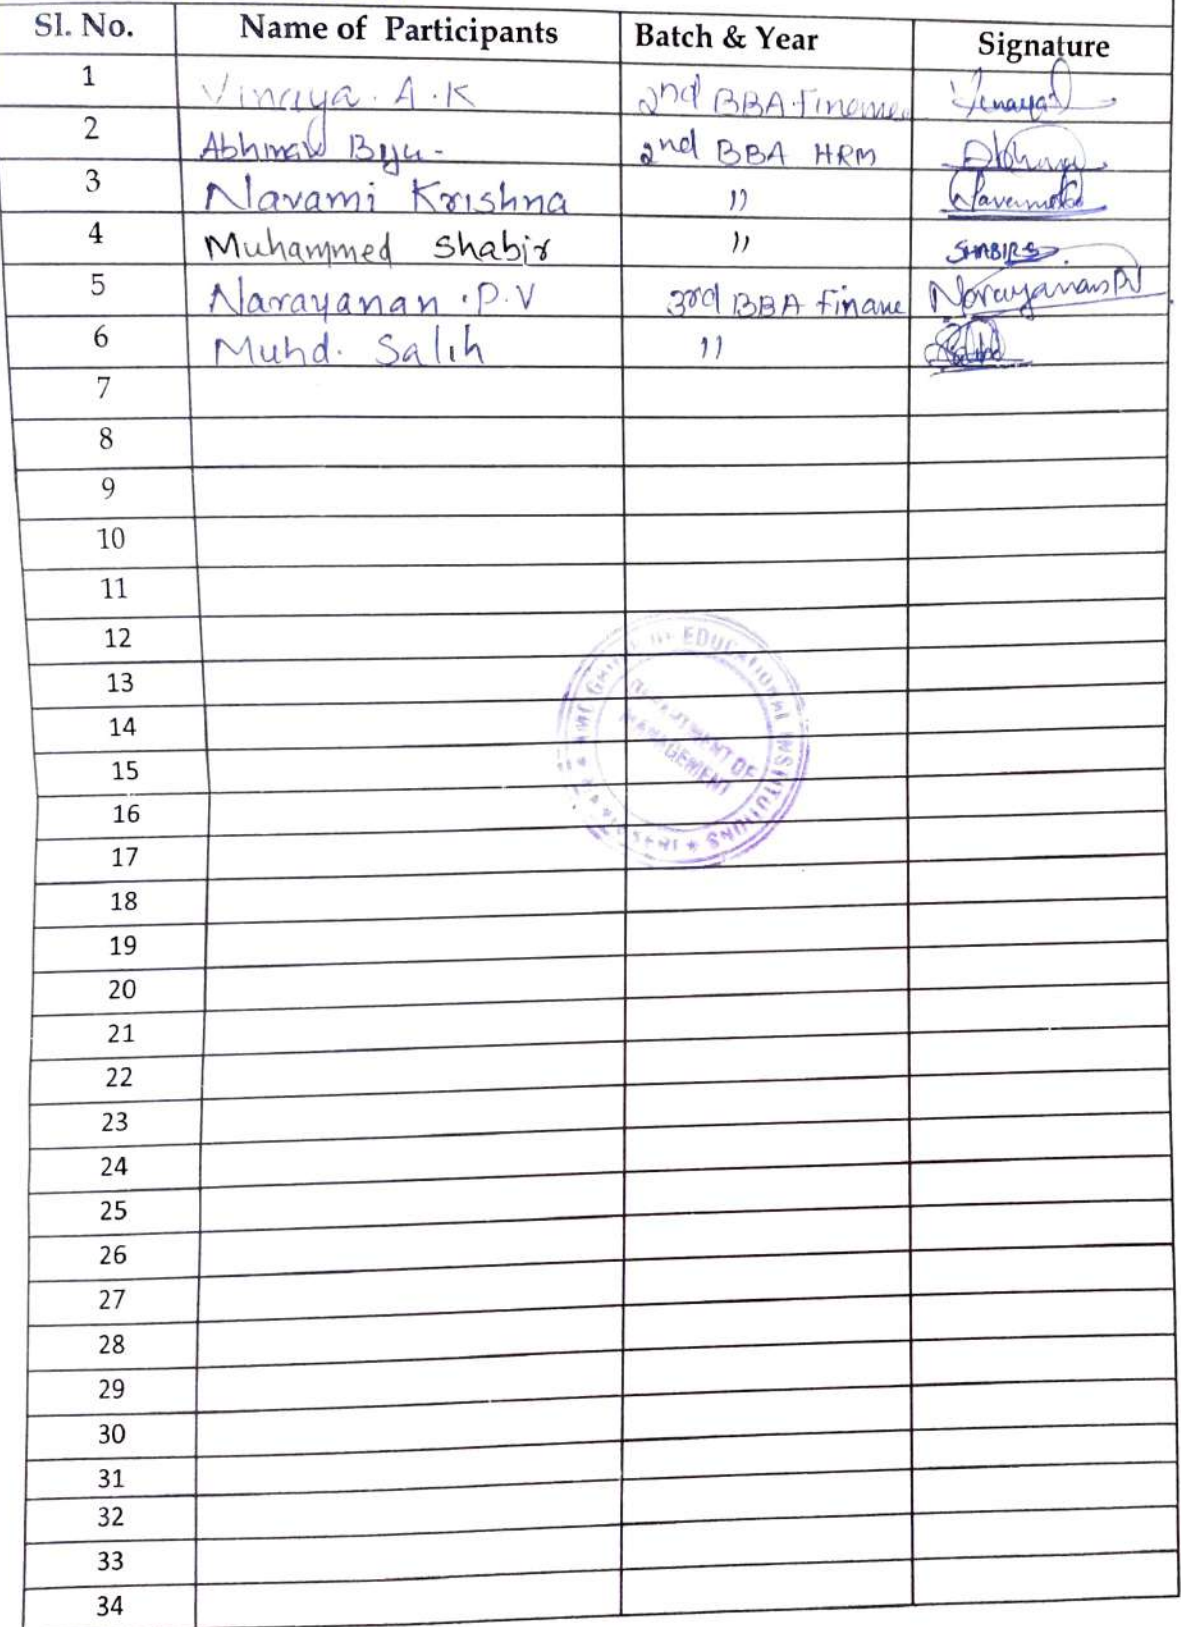 Sl. No. Name of Participants Batch & Year Signature
1 Vinaya. A.K 2nd BBA Finance Vinaya
2 Abhinav Byju- 2nd BBA HRM
3 Navami Krishna 〃
4 Muhammed Shabir 〃 SHABIRS
5 Narayanan .P.V 3rd BBA Finane Narayanan PV
6 Muhd. Salih 〃
7
8
9
10
11
12
13
14
15
16
17
18
19
20
21
22
23
24
25
26
27
28
29
30
31
32
33
34
OF EDUCATIONAL INSTITUTIONS
DEPARTMENT OF
MANAGEMENT